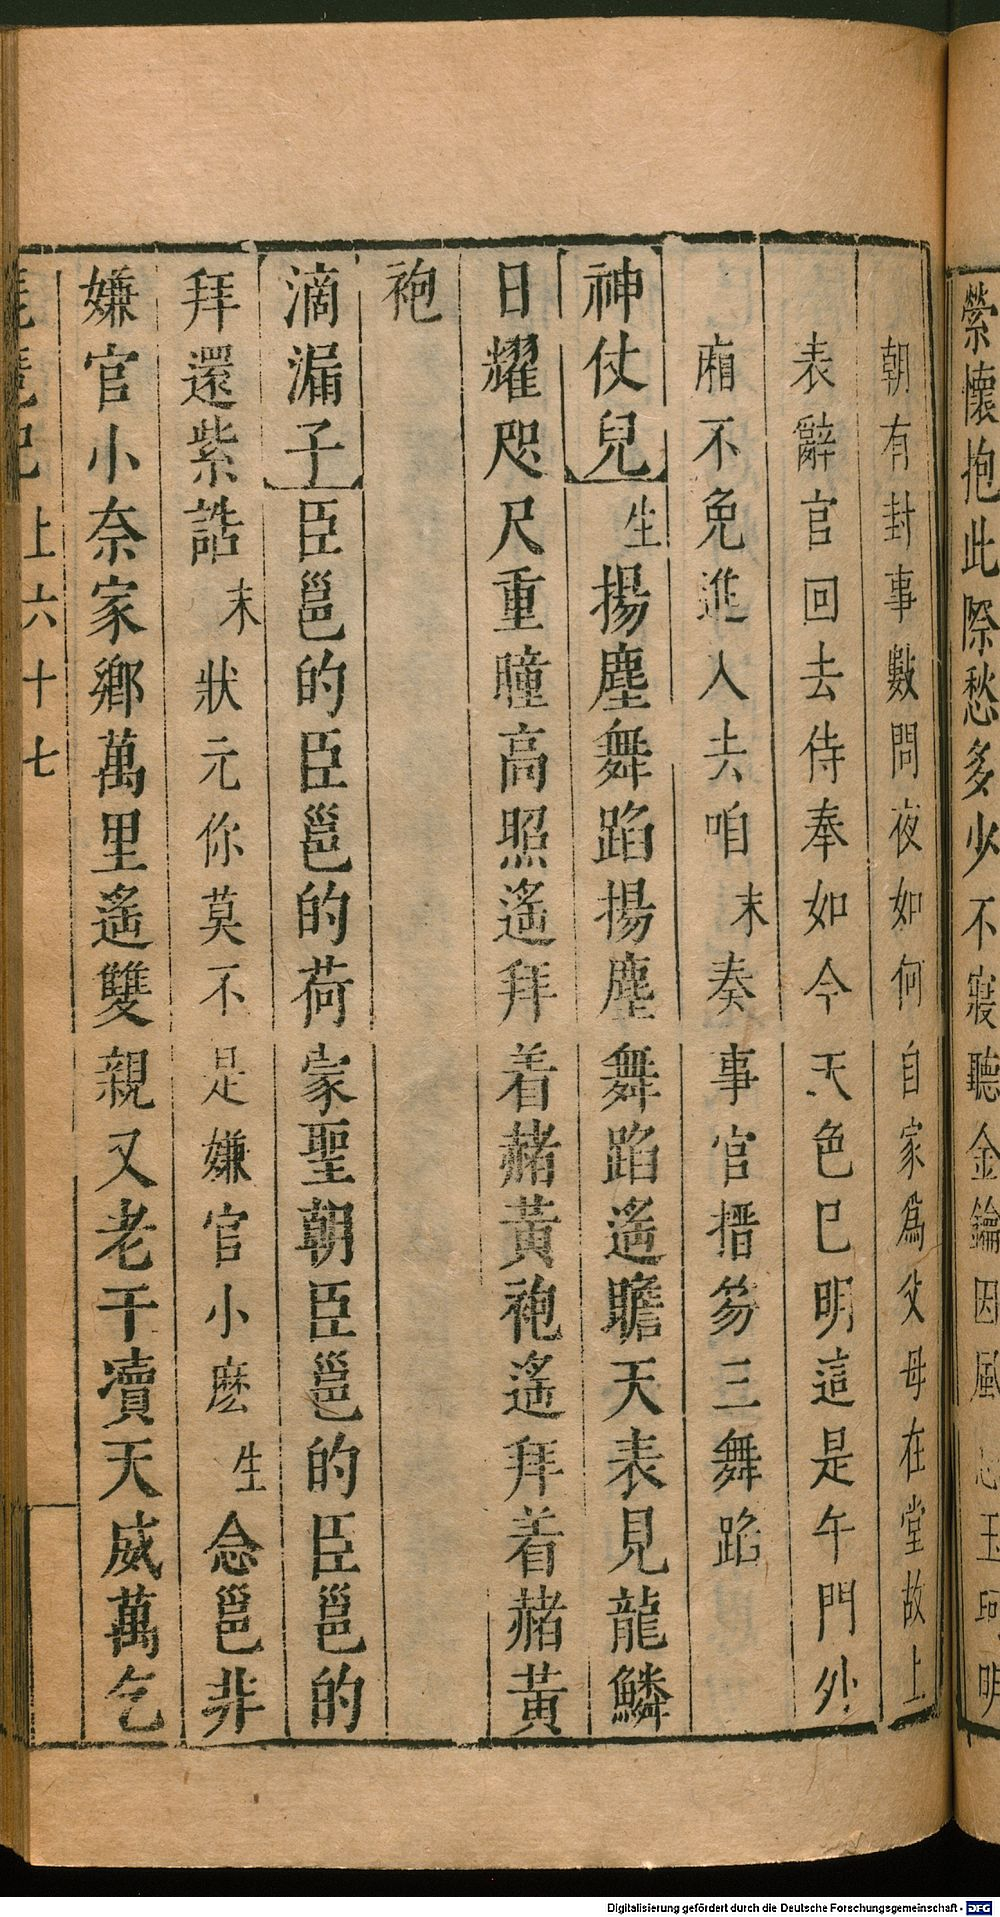 縈懷抱此際愁多少不寢聽金鑰因風 玉珂明
朝有封事數問夜如何自家爲父母在堂故上
表辭官回去侍奉如今天色巳明這是午門外
廂不免進入去咱末奏事官搢笏三舞蹈
神仗兒生揚塵舞蹈揚塵舞蹈遙瞻天表見龍鱗
日耀咫尺重瞳高照遙拜着赭黃袍遙拜着赭黃
袍
滴漏子臣邕的臣邕的荷家聖朝臣邕的臣邕的
拜還紫誥末狀元你莫不是嫌官小麽生念邕非
嫌官小奈家鄉萬里遙雙親又老干瀆天威萬乞
琵琶記 上六十七
Digitalisierung gefördert durch die Deutsche Forschungsgemeinschaft - DFG